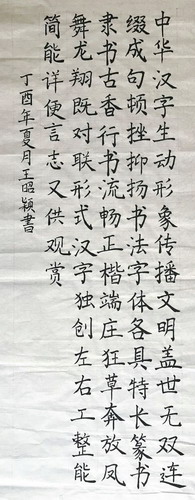 中华汉字生动形象传播文明盖世无双连
缀成句顿挫抑扬书法字体各具特长篆书
隶书古香行书流畅正楷端庄狂草奔放凤
舞龙翔既对联形式汉字独创左右工整能
简能详便言志又供观赏
丁酉年夏月王昭颖書